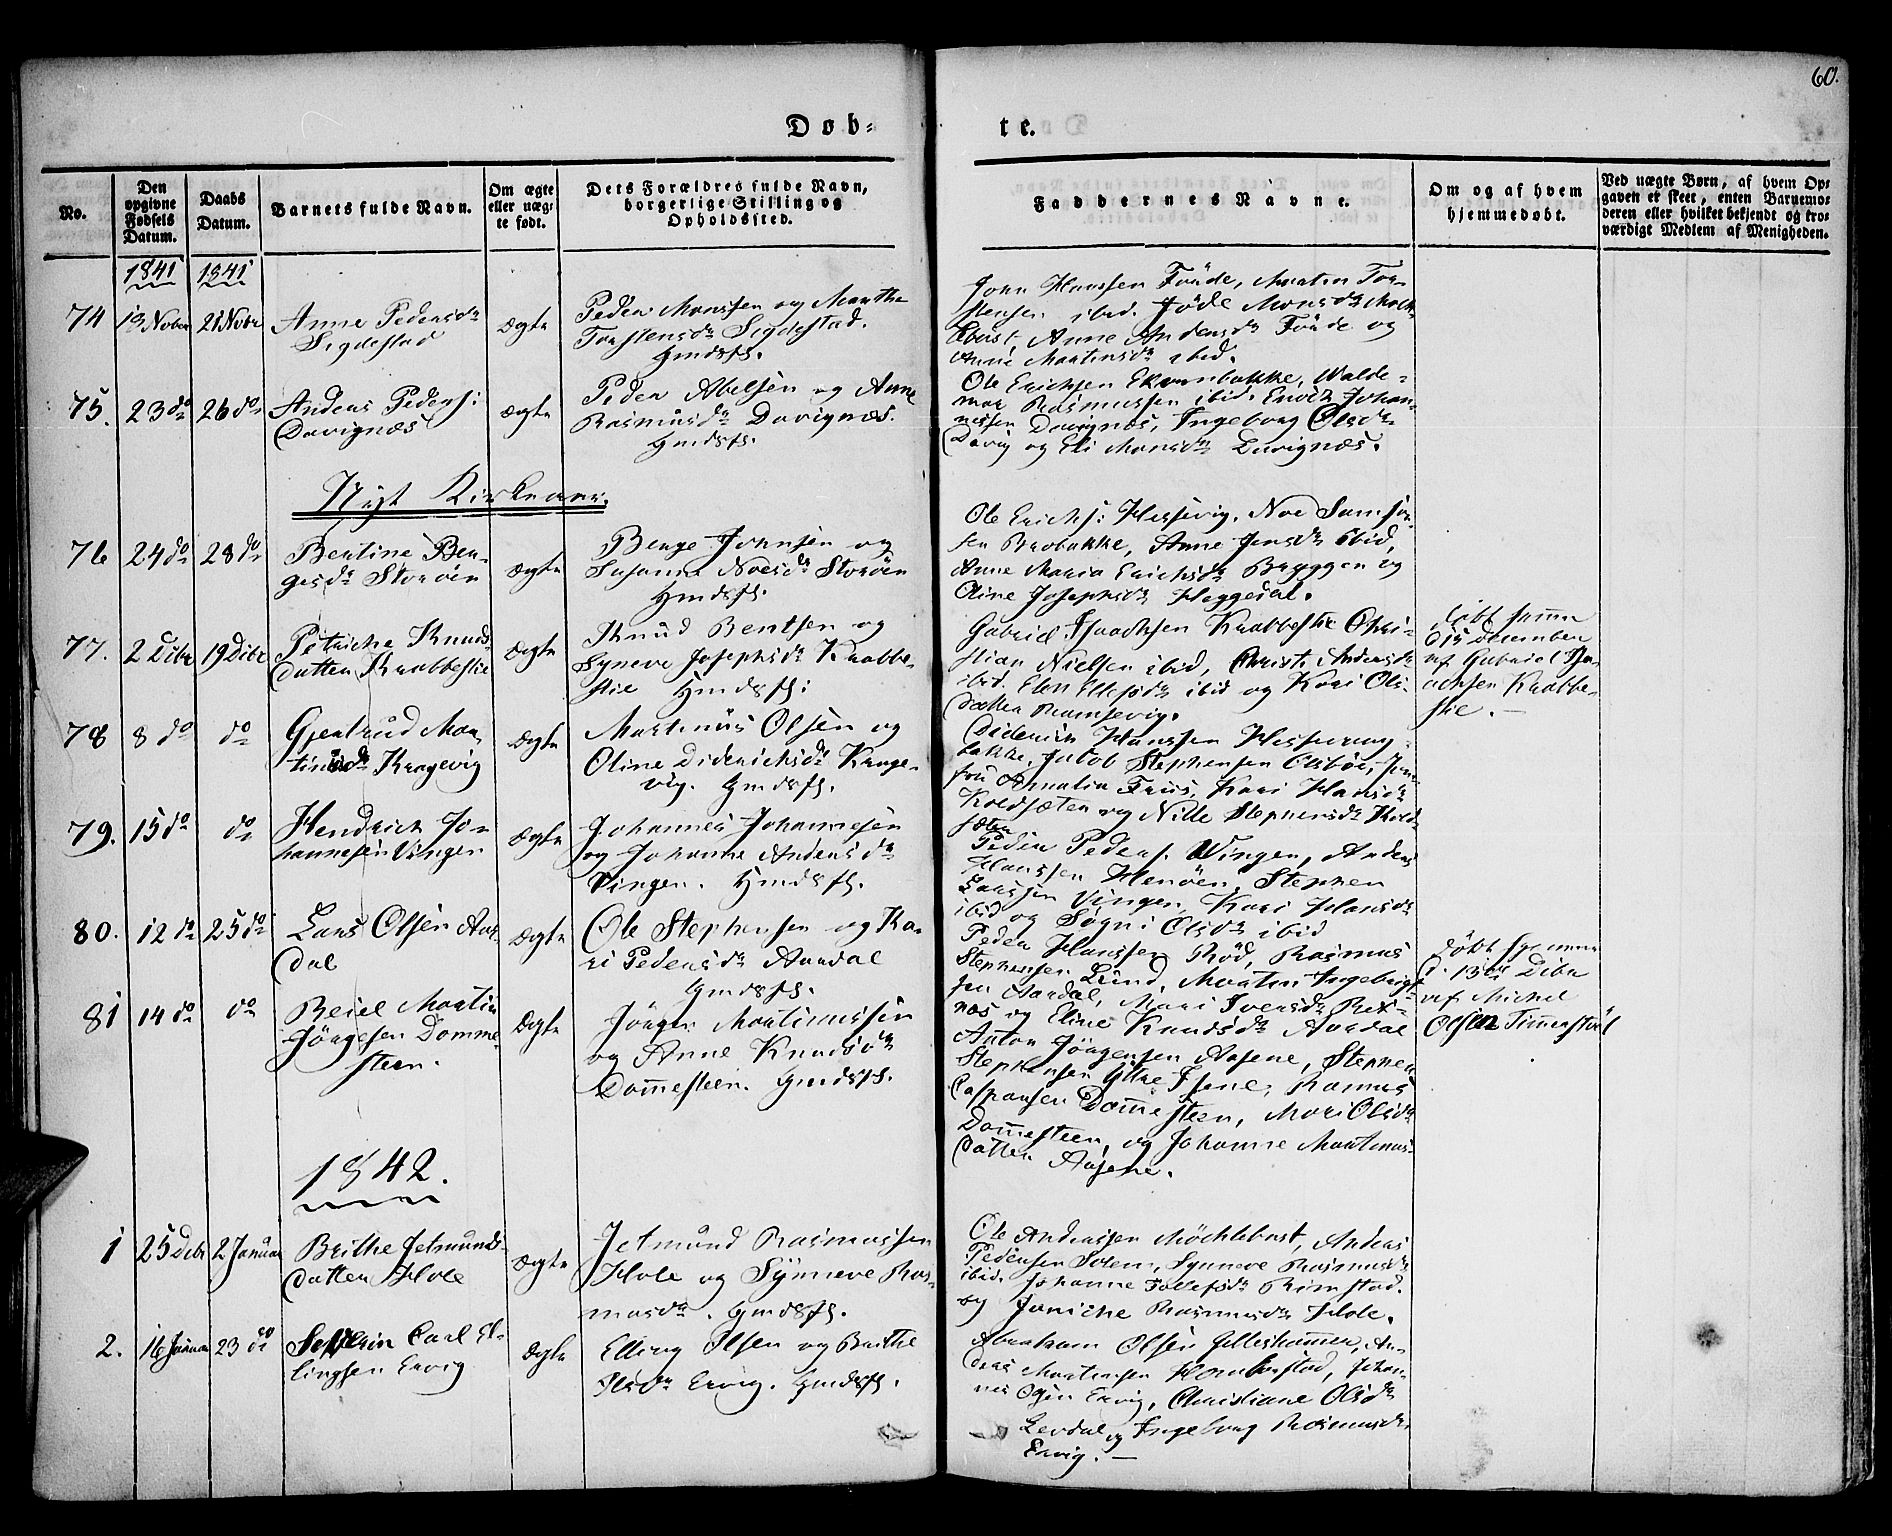 60.
Døb-
te.
No.
Den opgivne Fødsels Datum.
Daabs Datum.
Barnets fulde Navn.
Om ægte eller uægte født.
Dets Forældres fulde Navn, borgerlige Stilling og Opholdssted.
Faddernes Navne.
Om og af hvem hjemmedøbt.
Ved uægte Børn, af hvem Opgaven er skeet, enten Barnemoderen eller hvilket bekjendt og troværdigt Medlem af Menigheden.
1841 1841
74 13 Nobr 21 Nobr
Anne Pedersdr
Sigdestad
ægte
Peder Monssen og Marthe
Torstensdr Sigdestad.
Gmdsf.
John Hanssen Förde, Martin Tor-
stensen ibid. Monsdr
Anne Andersdr Förde og
Anne Martinsdr ibid.
75. 23 do 26 do
Anders Peders:
Davignæs
ægte
Peder Abelsen og Anne
Rasmusdr Davignæs.
Gmdsf.
Ole Erichsen Ekrembakke, Walde-
mar Rasmussen ibid. Enoch Johan-
nessen Davignæs, Ingeborg Olsdr
Davig og Eli Monsdr Davignæs.
Nyt Kirkeaar.
76 24 do 28 do
Bertine Ben-
gesdr Storöen
ægte
Benge Johnsen og
Susanna Noesdr Storöen
Gmdsf.
Ole Erichs: Hessevig, Noe Samso-
sen Brobakke, Anne Jensdr ibid,
Anne Maria Erichsdr Bryggen og
Oline Josephsdr Heggedal.
77. 2 Dcbr 19 Dcbr
Petriche Knuds-
datter Krabbestie
ægte
Knud Bentsen og
Syneve Josephsdr Krabbe-
stie Gmdsf:
Gabriel Isaachsen Krabbestie Chri-
stian Nielsen ibid, Christi Andersdr
ibid. Elen Ellefsdr ibid og Kari Ols-
datter Ramsevig.
döbt hjemme
d 15 December
af Gabriel Isa-
achsen Krabbe-
stie. —
78 8 do do
Gjertrud Mar-
tinusdr Krogevig
ægte
Martinus Olsen og
Oline Diderichsdr Kroge-
vig. Gmdsf.
Diderich Hanssen
bakke, Jacob Stephensen Osböe, Jom-
fru Amalia Friis, Kari Hansdr
Koldsæten og Nille Stephensdr Kold-
sæten
79. 15 do do
Hendrich Jo-
hannesen Vingen
ægte
Johannes Johannesen
og Johanne Andersdr
Vingen. Gmdsf.
Peder Peders. Vingen, Anders
Hanssen Henöen, Stephen
Larssen Vingen, Kari Hansdr
ibid og Søgni Olsdr ibid
80. 12 do 25 do
Lars Olsen Aar-
dal
ægte
Ole Stephensen og Ka-
ri Pedersdr Aardal
Gmdsf.
Peder Hanssen Röd, Rasmus
Stephensen Lund, Martin Ingebrigt-
sen Aardal, Mari Iversdr Rex-
næs og Eline Knudsdr Aardal
döbt hjemme
d. 13de Dcbr
af Michel
Olsen
81 14 do do
Beiel Martin
Jörgesen Domme-
steen.
ægte
Jörgen Martinussen
og Anne Knudsdr
Dommesteen. Gmdsf.
Anton Jörgensen Aasene, Stephen
Stephensen Ytre Isene, Rasmus
Caspersen Dommesteen, Mari Olsdr
Dommesteen, og Johanne Martinus-
datter Aasene.
1842.
1 25 Dcbr 2 Januar
Brithe Jetmunds-
datter Hole
ægte
Jetmund Rasmussen
Hole og Synneve Ras-
musdr. Gmdsf.
Ole Anderssen Möchlebost, Anders
Pedersen Solem, Synneve Rasmusdr
ibid. Johanne Tollefsdr Rimstad.
og Janiche Rasmusdr Hole.
2. 16 Januar 23 do
Severin Carl El-
lingsen Ervig
ægte
Elling Olsen og Brithe
Ervig. Gmdsf.
Abraham Olsen Gilleshammer, An-
ders Martinsen Hornbrstad, Johan-
nes Ervig, Christiane Olsdr
Levdal og Ingeborg Rasmusdr
Ervig. —